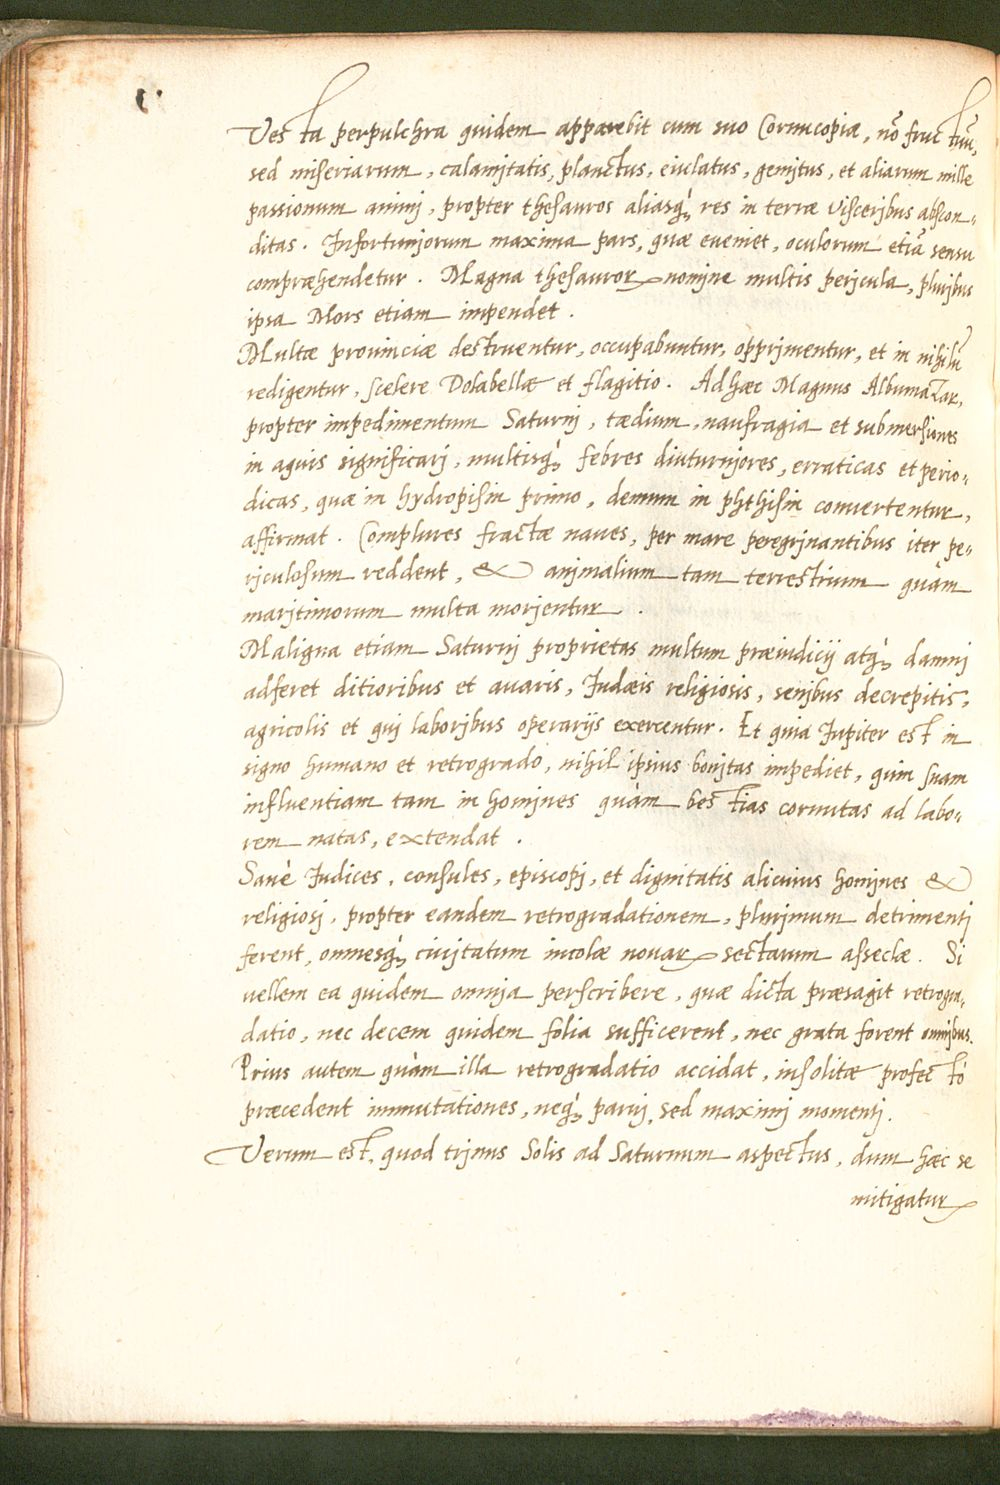 Vesta perpulchra quidem apparebit cum suo Cornucopiæ, nõ fructuũ,
sed miseriarum, calamitatis, planctus, eiulatus, gemitus, et aliarum mille
passionum animi, propter thesauros aliasq́; res in terræ visceribus abscon-
ditas. Infortuniorum maxima pars, quæ eveniet, oculorum etiã sensu
compræhendetur. Magna thesauror nomine multis pericula, pluribus
ipsa Mors etiam impendet.
Multæ prouinciæ destruentur, occupabuntur, opprimentur, et in nihilũ
redigentur, scelere Dolabellæ et flagitio. Ad hæc Magnus Albumazar,
propter impedimentum Saturni, tædium, naufragia et submersiones
in aquis significari, multisq́; febres diuturniores, erraticas et perio-
dicas, quæ in hydropisin primo, demum in phthisin conuertentur,
affirmat. Complures fractæ naues, per mare peregrinantibus iter pe-
riculosum reddent, & animalium tam terrestrium quàm
maritimorum multa morientur.
Maligna etiam Saturni proprietas multum præiudicij atq́; damni
adferet ditioribus et auaris, Iudæis religiosis, senibus decrepitis,
agricolis et qui laboribus operarijs exercentur. Et quia Iupiter est in
signo humano et retrogrado, nihil ipsius bonitas impediet, quin suam
influentiam tam in homines quàm bestias cornutas ad labo-
rem natas, extendat.
Sanè Iudices, consules, episcopi, et dignitatis alicuius homines &
religiosi, propter eandem retrogradationem, plurimum detrimenti
ferent, omnesq́; ciuitatum incolæ nouar sectarum asseclæ. Si
vellem ea quidem omnia perscribere, quæ dicta præsagit retrogra-
datio, nec decem quidem folia sufficerent, nec grata forent omnibus.
Prius autem quàm illa retrogradatio accidat, insolitæ profectò
præcedent immutationes, neq́; parui, sed maximi momenti.
Verum est, quod trinus Solis ad Saturnum aspectus, dum hæc se
mitigatur